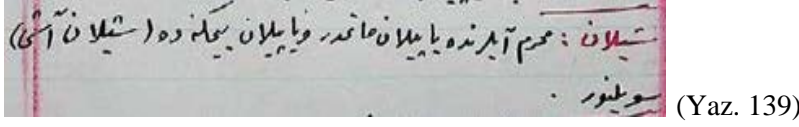 شیلان : محرم آیلرنده یاپیلان ماتمدر ویاپیلان ییمکه ده (شیلان آشی)
سویلنور . (Yaz. 139)